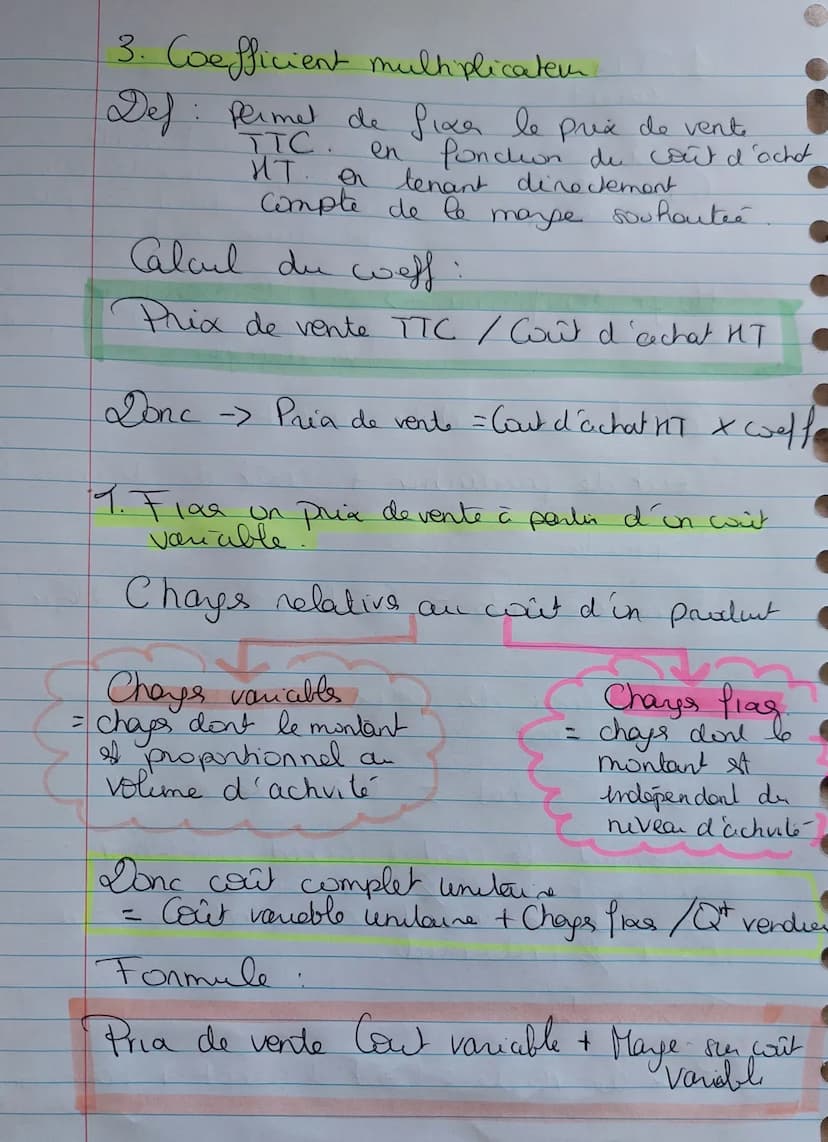 3. Coefficient multiplicateur
Def : permet de fixer le prix de vente
TTC. en fonction du coût d'achat
HT. en tenant directement
compte de la marge souhaitée.
Calcul du coeff :
Prix de vente TTC / Coût d'achat HT
Donc -> Prix de vente = Cout d'achat HT x coeff
1. Fixer un prix de vente à partir d'un coût
variable.
Charges relatives au coût d'un produit
Charges variables
= charges dont le montant
est proportionnel au
volume d'activité
Charges fixes
= charges dont le
montant est
indépendant du
niveau d'activité
Donc coût complet unitaire
= Coût variable unitaire + Charges fixes / Qté vendues
Formule :
Prix de vente Cout variable + Marge sur coût
variable